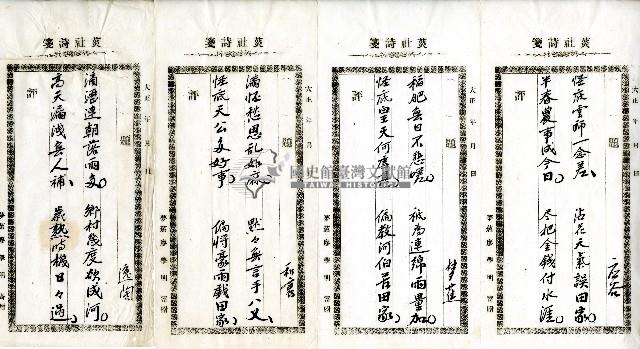 社詩箋
大正 年 月 日
題
怪底雲師一念差、 沾花天氣誤田家
半春農事成今日、 尽把金錢付水涯
評
社詩箋
大正 年 月 日
題
肥無日不悲嗟 祇為連綿雨量加
怪底皇天何 偏教河伯苦田家
夢蕉
評
社詩箋
大正 年 月 日
題
滿懷愁思亂如麻 默々無言手八叉
怪底天公多好事 偏將豪雨戲田家
評
社詩箋
大正 年 月 日
題
滴瀝連朝落雨多 鄉村幾度欲成河
高天漏洩無人補、 歲熟時機日々過
評
國史館臺灣文獻館
TAIWAN HISTORICA